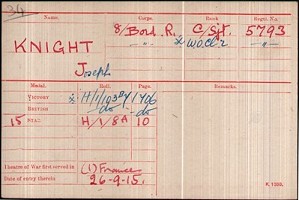 34
Name. Corps. Rank Regtl. No.
KNIGHT 8/Bord. R. C/Sjt. 5793
-"- x W.O.Cl 2 -"-
Joseph
Medal. Roll. Page. Remarks.
VICTORY x H/1/103 B4 1406
BRITISH do do
15 STAR H/1/8A 10
Theatre of War first served in (1) France
Date of entry therein 26-9-15.
K. 1380.